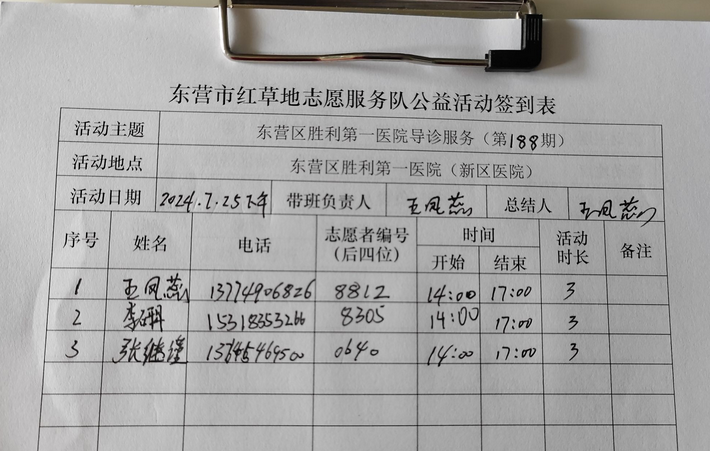 东营市红草地志愿服务队公益活动签到表
活动主题 东营区胜利第一医院导诊服务（第188期）
活动地点 东营区胜利第一医院（新区医院）
活动日期 2024.7.25下午 带班负责人 王凤蕊 总结人 王凤蕊
序号 姓名 电话 志愿者编号（后四位） 时间 开始 结束 活动时长 备注
1 王凤蕊 13774906826 8812 14:00 17:00 3
2 李研 15318353266 8305 14:00 17:00 3
3 张继 13645469500 0640 14:00 17:00 3